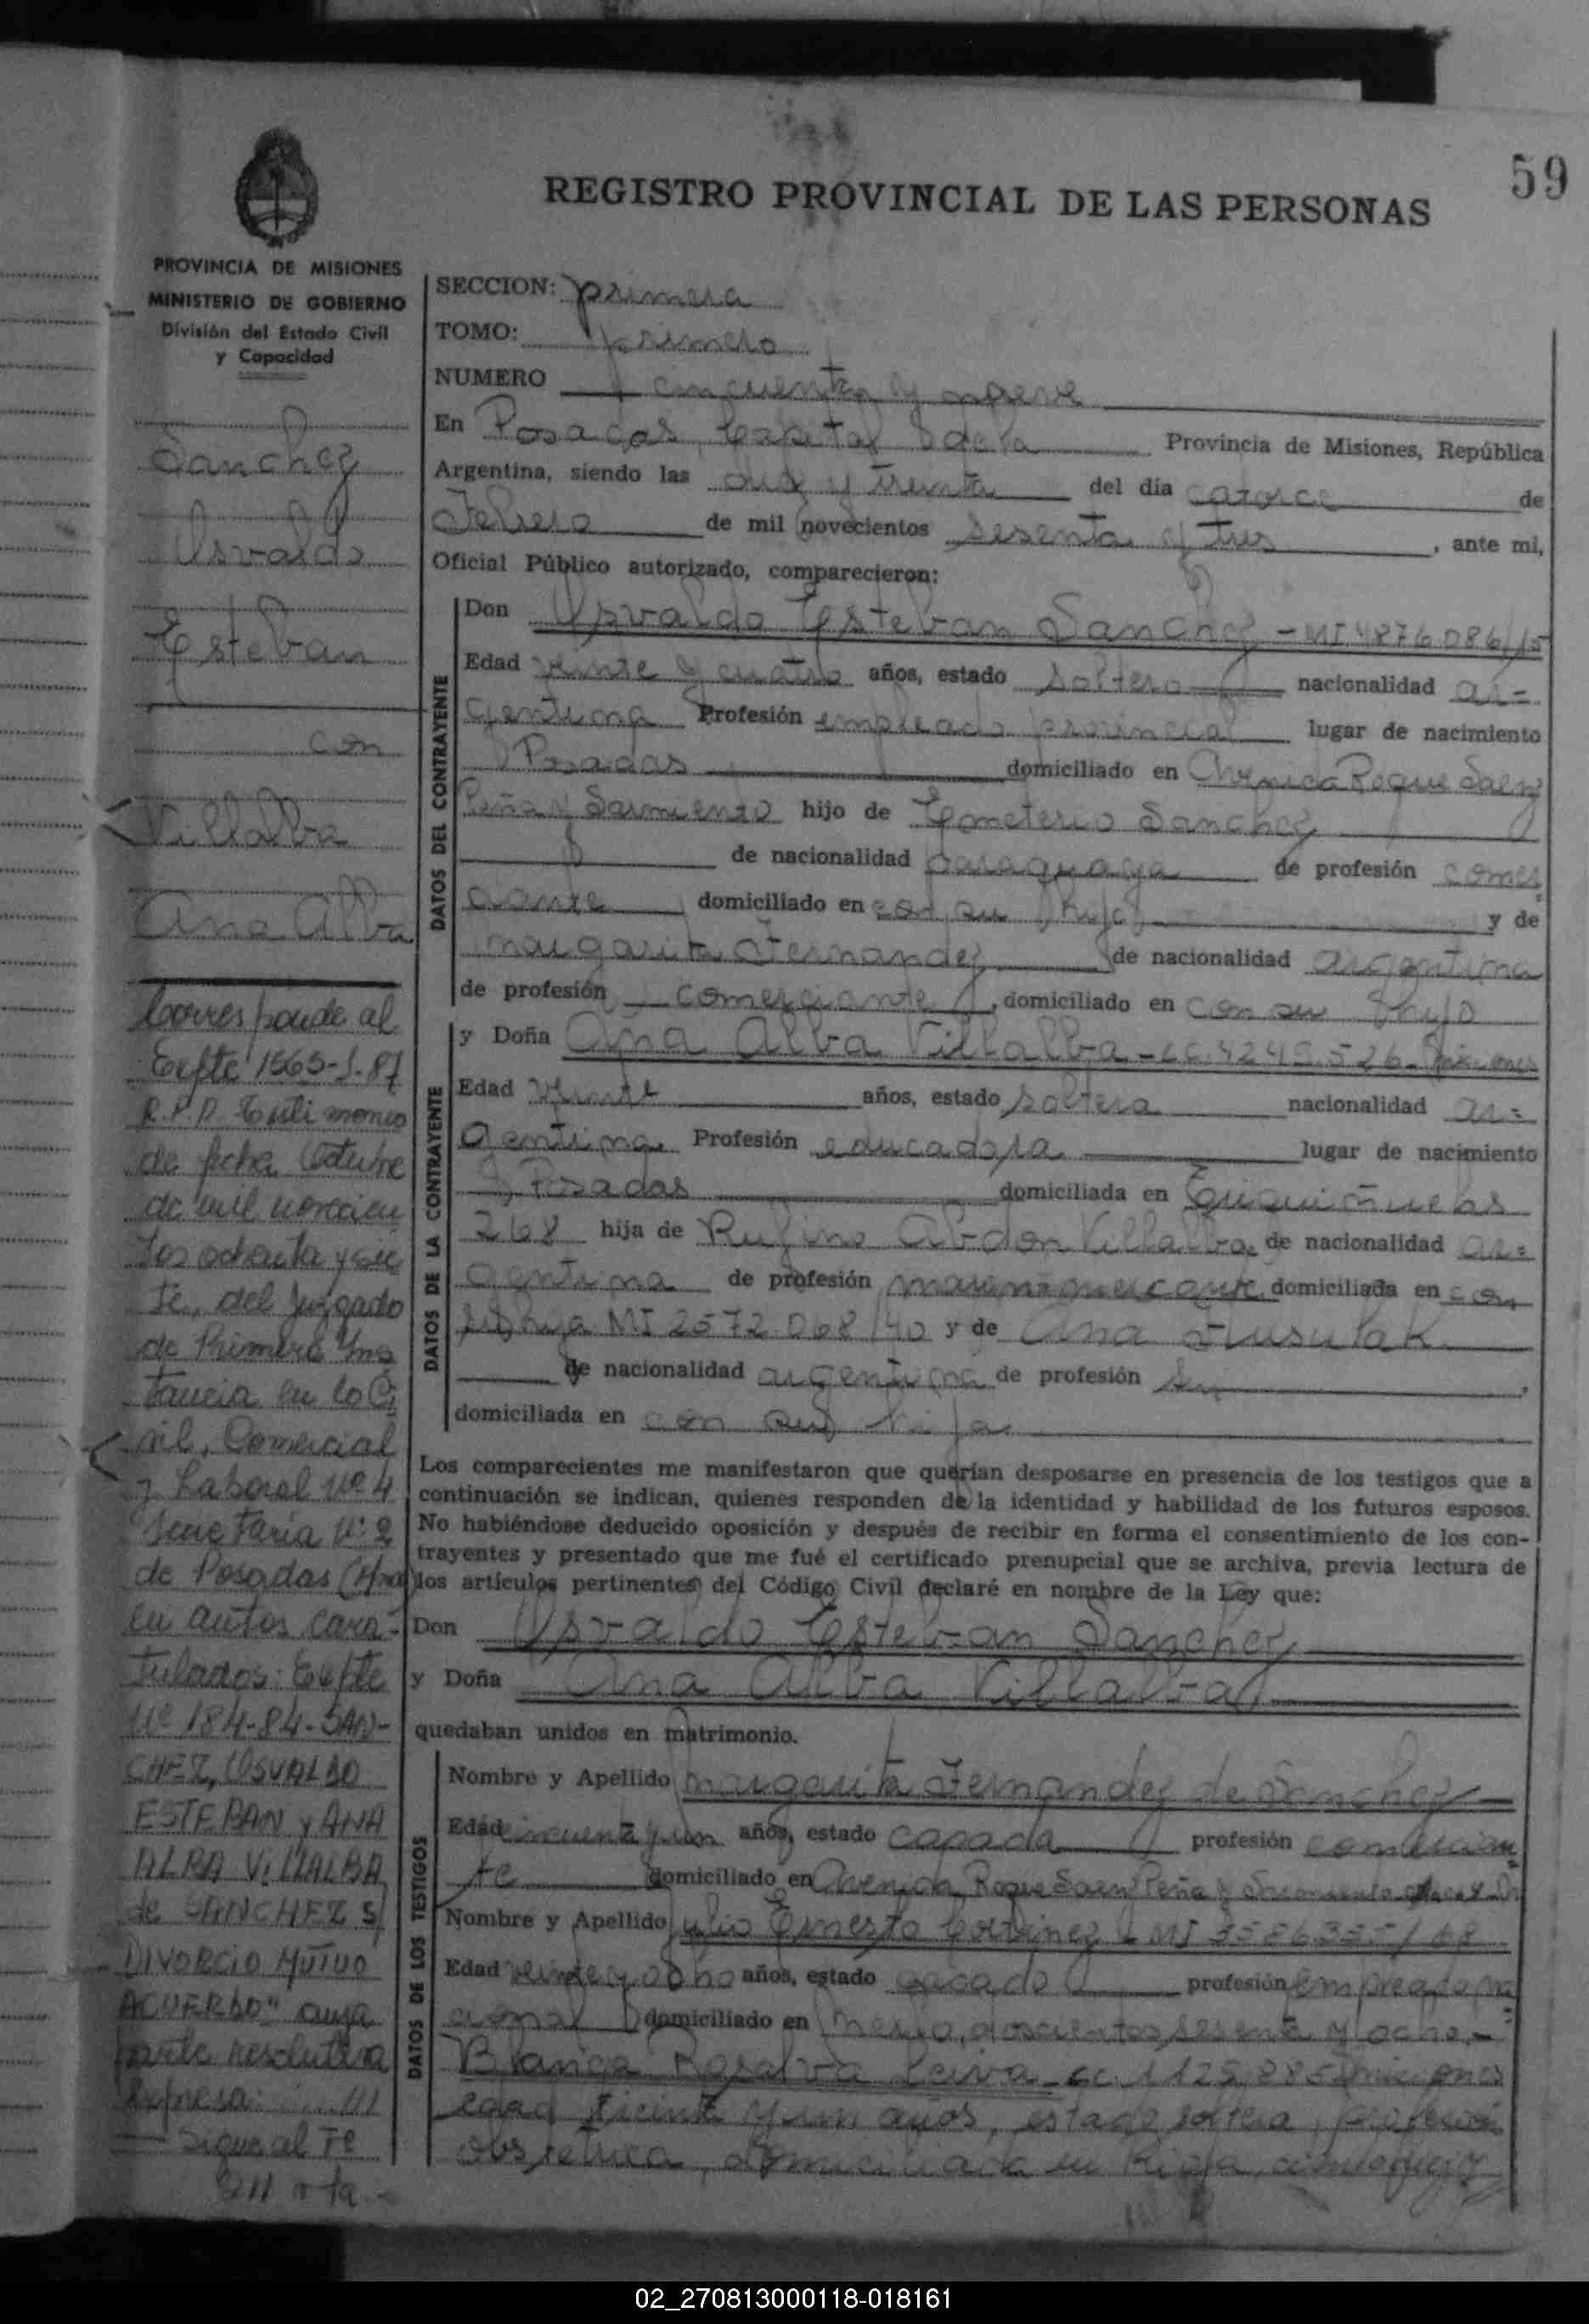 59
REGISTRO PROVINCIAL DE LAS PERSONAS
PROVINCIA DE MISIONES
MINISTERIO DE GOBIERNO
División del Estado Civil
y Capacidad
Sanchez
Osvaldo
Esteban
con
Villalba
Ana Alba
Corresponde al
Expte 1565-S-87
R.P.P. Testimonio
de fecha Octubre
de mil novecien
tos ochenta y sie
te, del Juzgado
de Primera Ins
tancia en lo Ci
vil, Comercial
y Laboral Nº 4
Secretaría Nº 2
de Posadas
en autos cara-
tulados: Expte
Nº 184-84-SAN-
CHEZ, OSVALDO
ESTEBAN y ANA
ALBA VILLALBA
de SANCHEZ S/
DIVORCIO MUTUO
ACUERDO" cuya
parte resolutiva
expresa: ... ///
Sigue al
SECCION: primera
TOMO: primero
NUMERO cincuenta y nueve
En Posadas, Capital de la Provincia de Misiones, República
Argentina, siendo las diez y treinta del día catorce de
Febrero de mil novecientos sesenta y tres, ante mi,
Oficial Público autorizado, comparecieron:
DATOS DEL CONTRAYENTE
Don Osvaldo Esteban Sanchez - MI 4876.086/15
Edad veinte y cuatro años, estado soltero nacionalidad ar=
gentina Profesión empleado provincial lugar de nacimiento
Posadas domiciliado en Avenida Roque Saenz
Peña y Sarmiento hijo de Emeterio Sanchez
de nacionalidad paraguaya de profesión comer
ciante domiciliado en con su hijo y de
Margarita Fernandez de nacionalidad argentina
de profesión comerciante, domiciliado en con su hijo
DATOS DE LA CONTRAYENTE
y Doña Ana Alba Villalba - CC. 4249.526 - Misiones
Edad veinte años, estado soltera nacionalidad ar=
gentina Profesión educadora lugar de nacimiento
Posadas domiciliada en
268 hija de Rufino Abdon Villalba de nacionalidad ar=
gentina de profesión marino mercante domiciliada en con
su hija MI 2572.068/40 y de Ana
de nacionalidad argentina de profesión
domiciliada en con su hija
Los comparecientes me manifestaron que querían desposarse en presencia de los testigos que a
continuación se indican, quienes responden de la identidad y habilidad de los futuros esposos.
No habiéndose deducido oposición y después de recibir en forma el consentimiento de los con-
trayentes y presentado que me fué el certificado prenupcial que se archiva, previa lectura de
los artículos pertinentes del Código Civil declaré en nombre de la Ley que:
Don Osvaldo Esteban Sanchez
y Doña Ana Alba Villalba
quedaban unidos en matrimonio.
DATOS DE LOS TESTIGOS
Nombre y Apellido Margarita Fernandez de Sanchez
Edad cincuenta y un años, estado casada profesión comercian
te domiciliado en Avenida Roque Saenz Peña y Sarmiento
Nombre y Apellido Julio Ernesto MI
Edad veinte y ocho años, estado casado profesión empleado na
cional domiciliado en doscientos sesenta y ocho.-
Blanca Rosalva Leiva - CC. Misiones
edad treinta y un años, estado soltera, profesión
obstetrica, domiciliada en Rioja
02_270813000118-018161